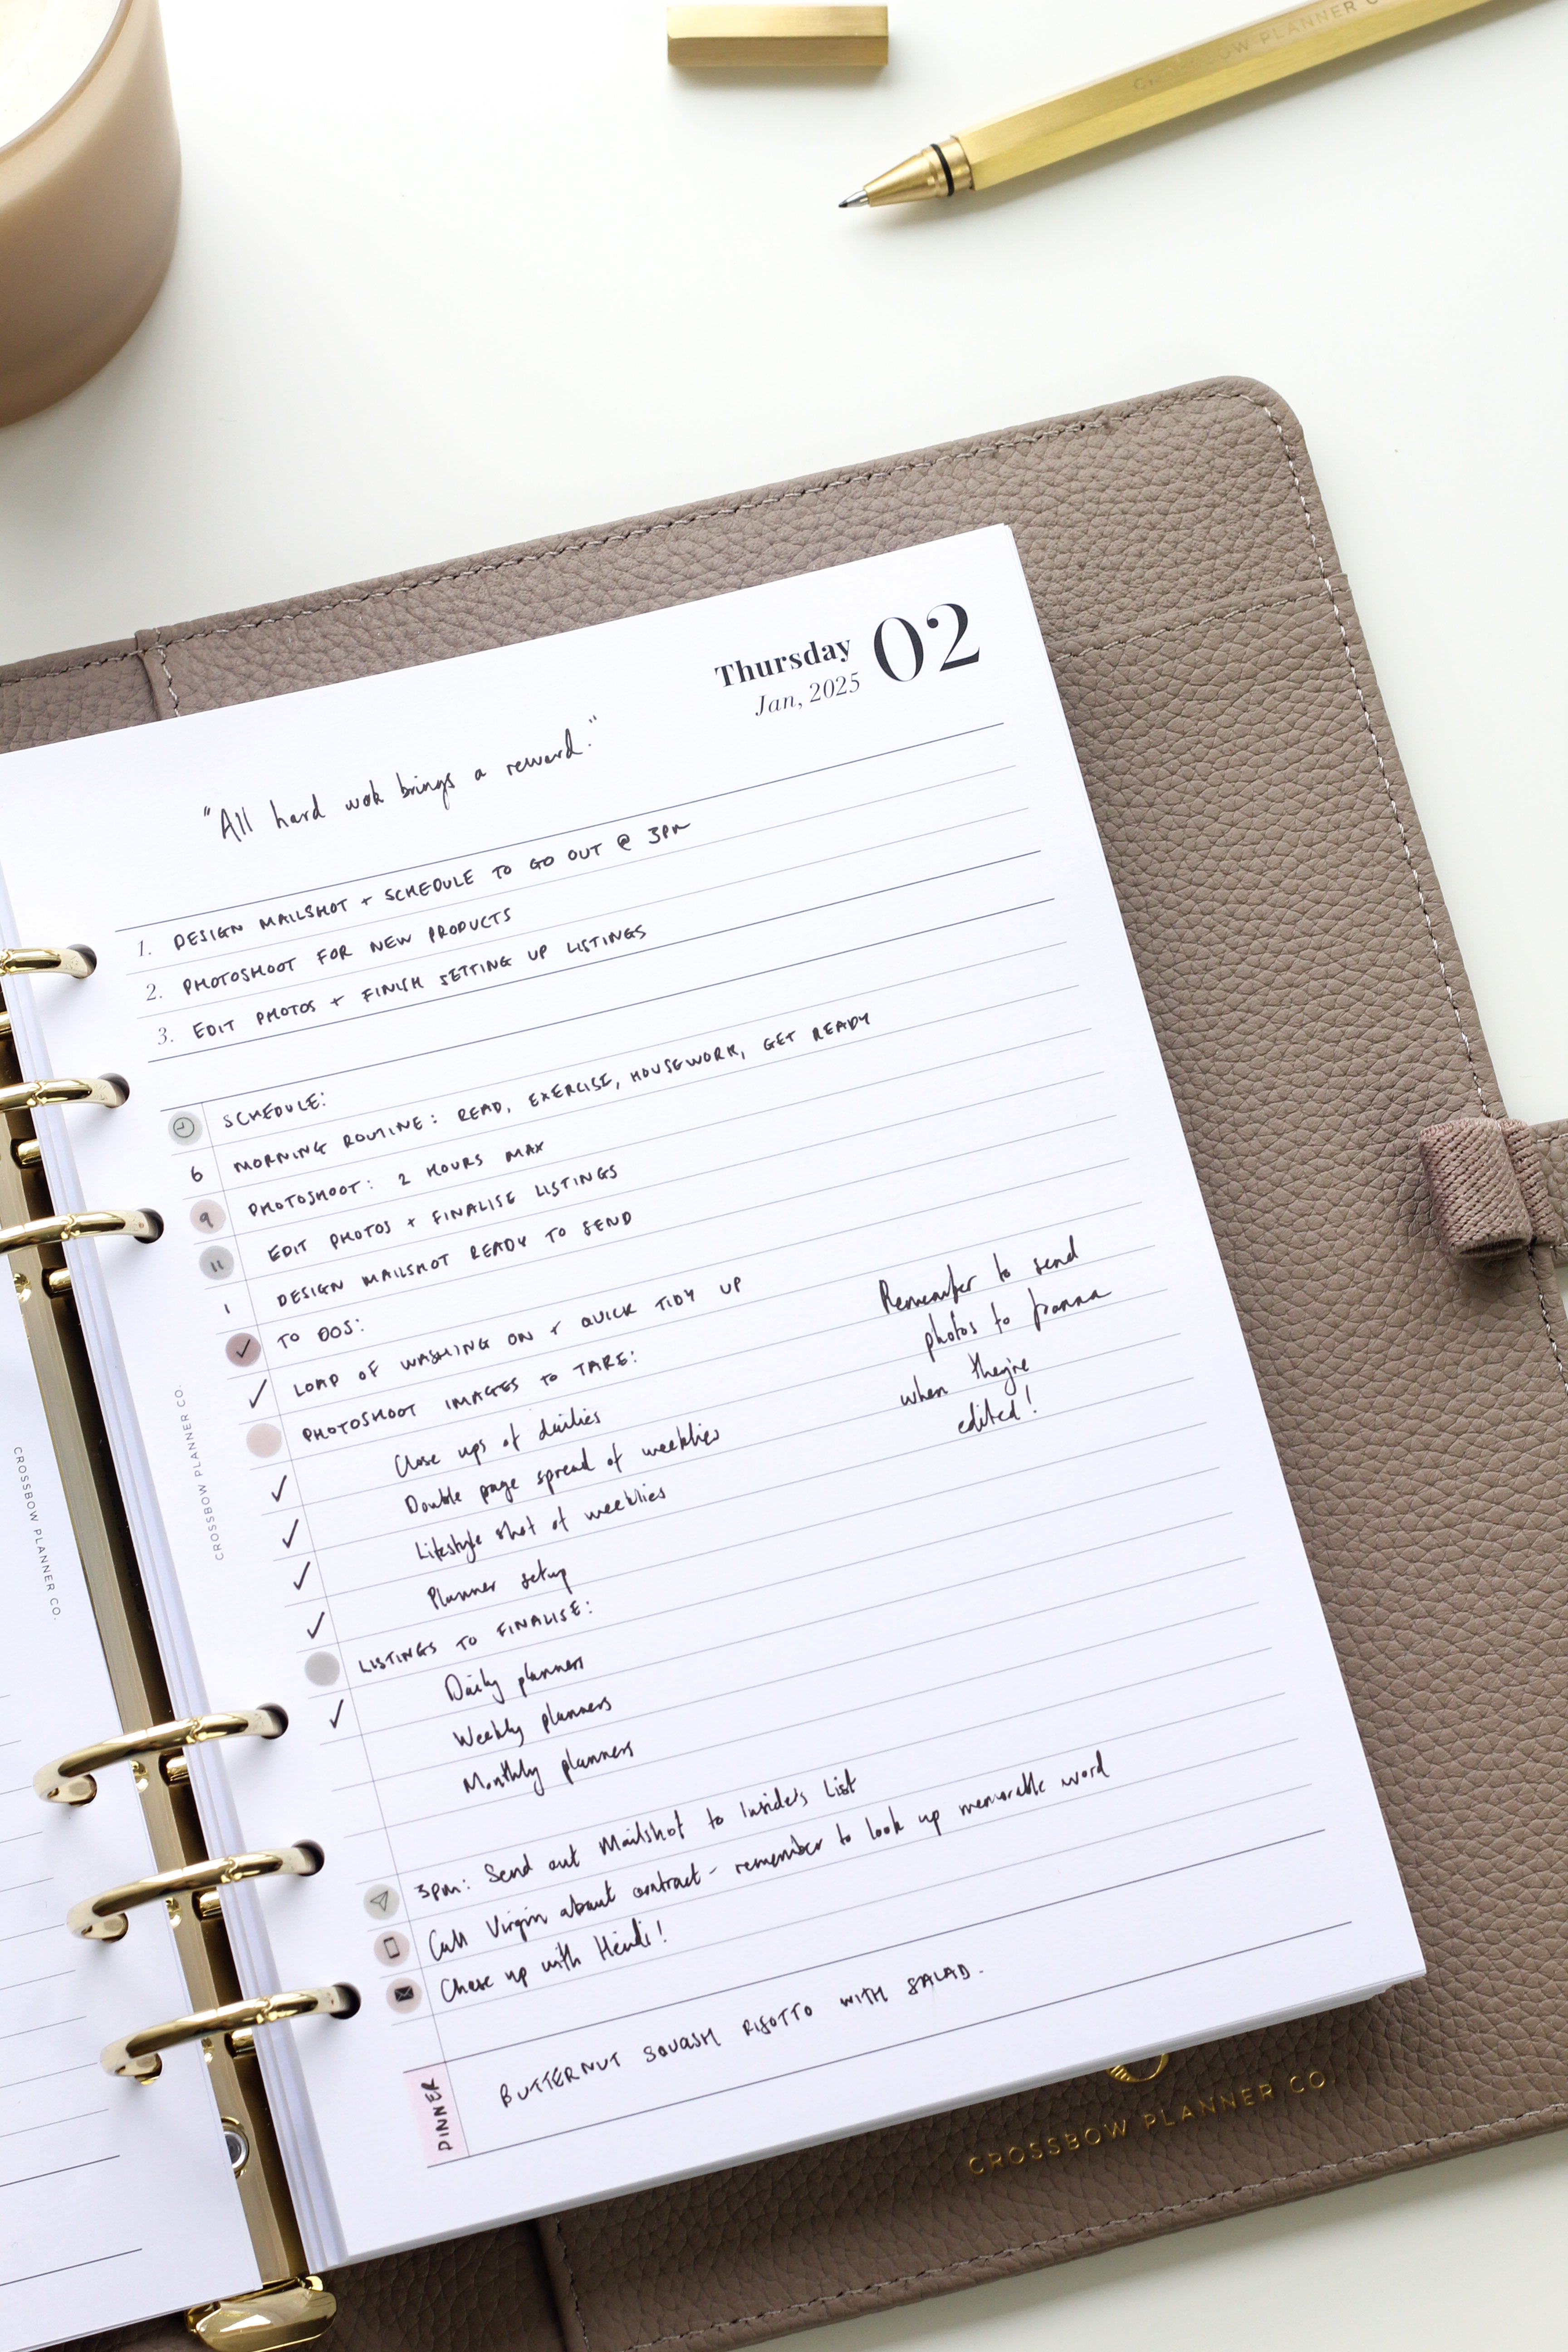 CROSSBOW PLANNER C
Thursday 02
Jan, 2025
"All hard wok brings a reward."
1. DESIGN MAILSHOT + SCHEDULE TO GO OUT @ 3PM
2. PHOTOSHOOT FOR NEW PRODUCTS
3. EDIT PHOTOS + FINISH SETTING UP LISTINGS
SCHEDULE:
6 MORNING ROUTINE: READ, EXERCISE, HOUSEWORK, GET READY
9 PHOTOSHOOT: 2 HOURS MAX
11 EDIT PHOTOS + FINALISE LISTINGS
1 DESIGN MAILSHOT READY TO SEND
✓ TO DOS:
✓ LOAD OF WASHING ON + QUICK TIDY UP
PHOTOSHOOT IMAGES TO TAKE:
✓ Close ups of dailies
✓ Double page spread of weeklies
✓ Lifestyle shot of weeklies
✓ Planner setup
LISTINGS TO FINALISE:
✓ Daily planners
Weekly planners
Monthly planners
Remember to send
photos to
when they're
edited!
3pm: Send out Mailshot to Insiders List
Call Virgin about contract - remember to look up memorable word
Chase up with Heidi!
DINNER
BUTTERNUT SQUASH RISOTTO WITH SALAD.
CROSSBOW PLANNER CO.
CROSSBOW PLANNER CO.
CROSSBOW PLANNER CO.